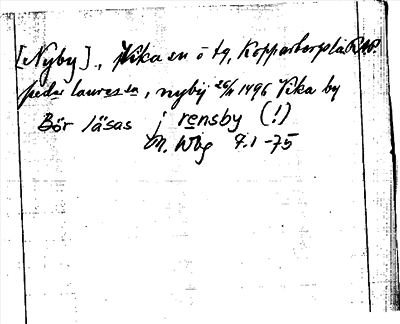 [Nyby]., Vika sn o tg, Kopparbergs län RAP
peder laures sn, nybij 26/1 1496 Vika by
Bör läsas j rensby (!)
M. Wbg 9.1-75